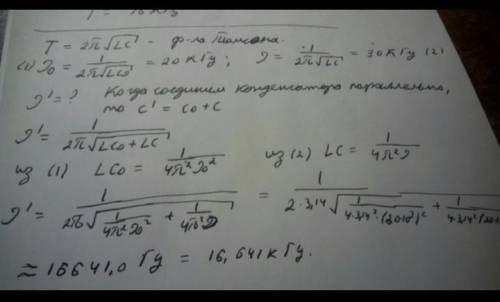 T = 2π√LC - ф-ла Томсона.
(1) ν₀ = 1/(2π√LC₀) = 20 кГц; ν = 1/(2π√LC) = 30 кГц (2)
ν' = ? Когда соединием конденсатора параллельно,
то C' = C₀ + C
ν' = 1/(2π√LC₀ + LC)
из (1) LC₀ = 1/(4π²ν₀²) из (2) LC = 1/(4π²ν
ν' = 1/(2π√(1/(4π²ν₀²) + 1/(4π²ν = 1/(2·3,14√(1/(4·3,14²·(30·10³)²) + 1/(4·3,14²(20·10
≈ 16641,0 Гц = 16,641 кГц.